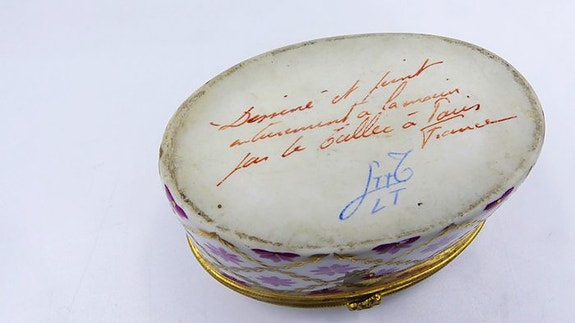 Dessiné et peint
entierement à la main
par le Tallec à Paris
France
LT